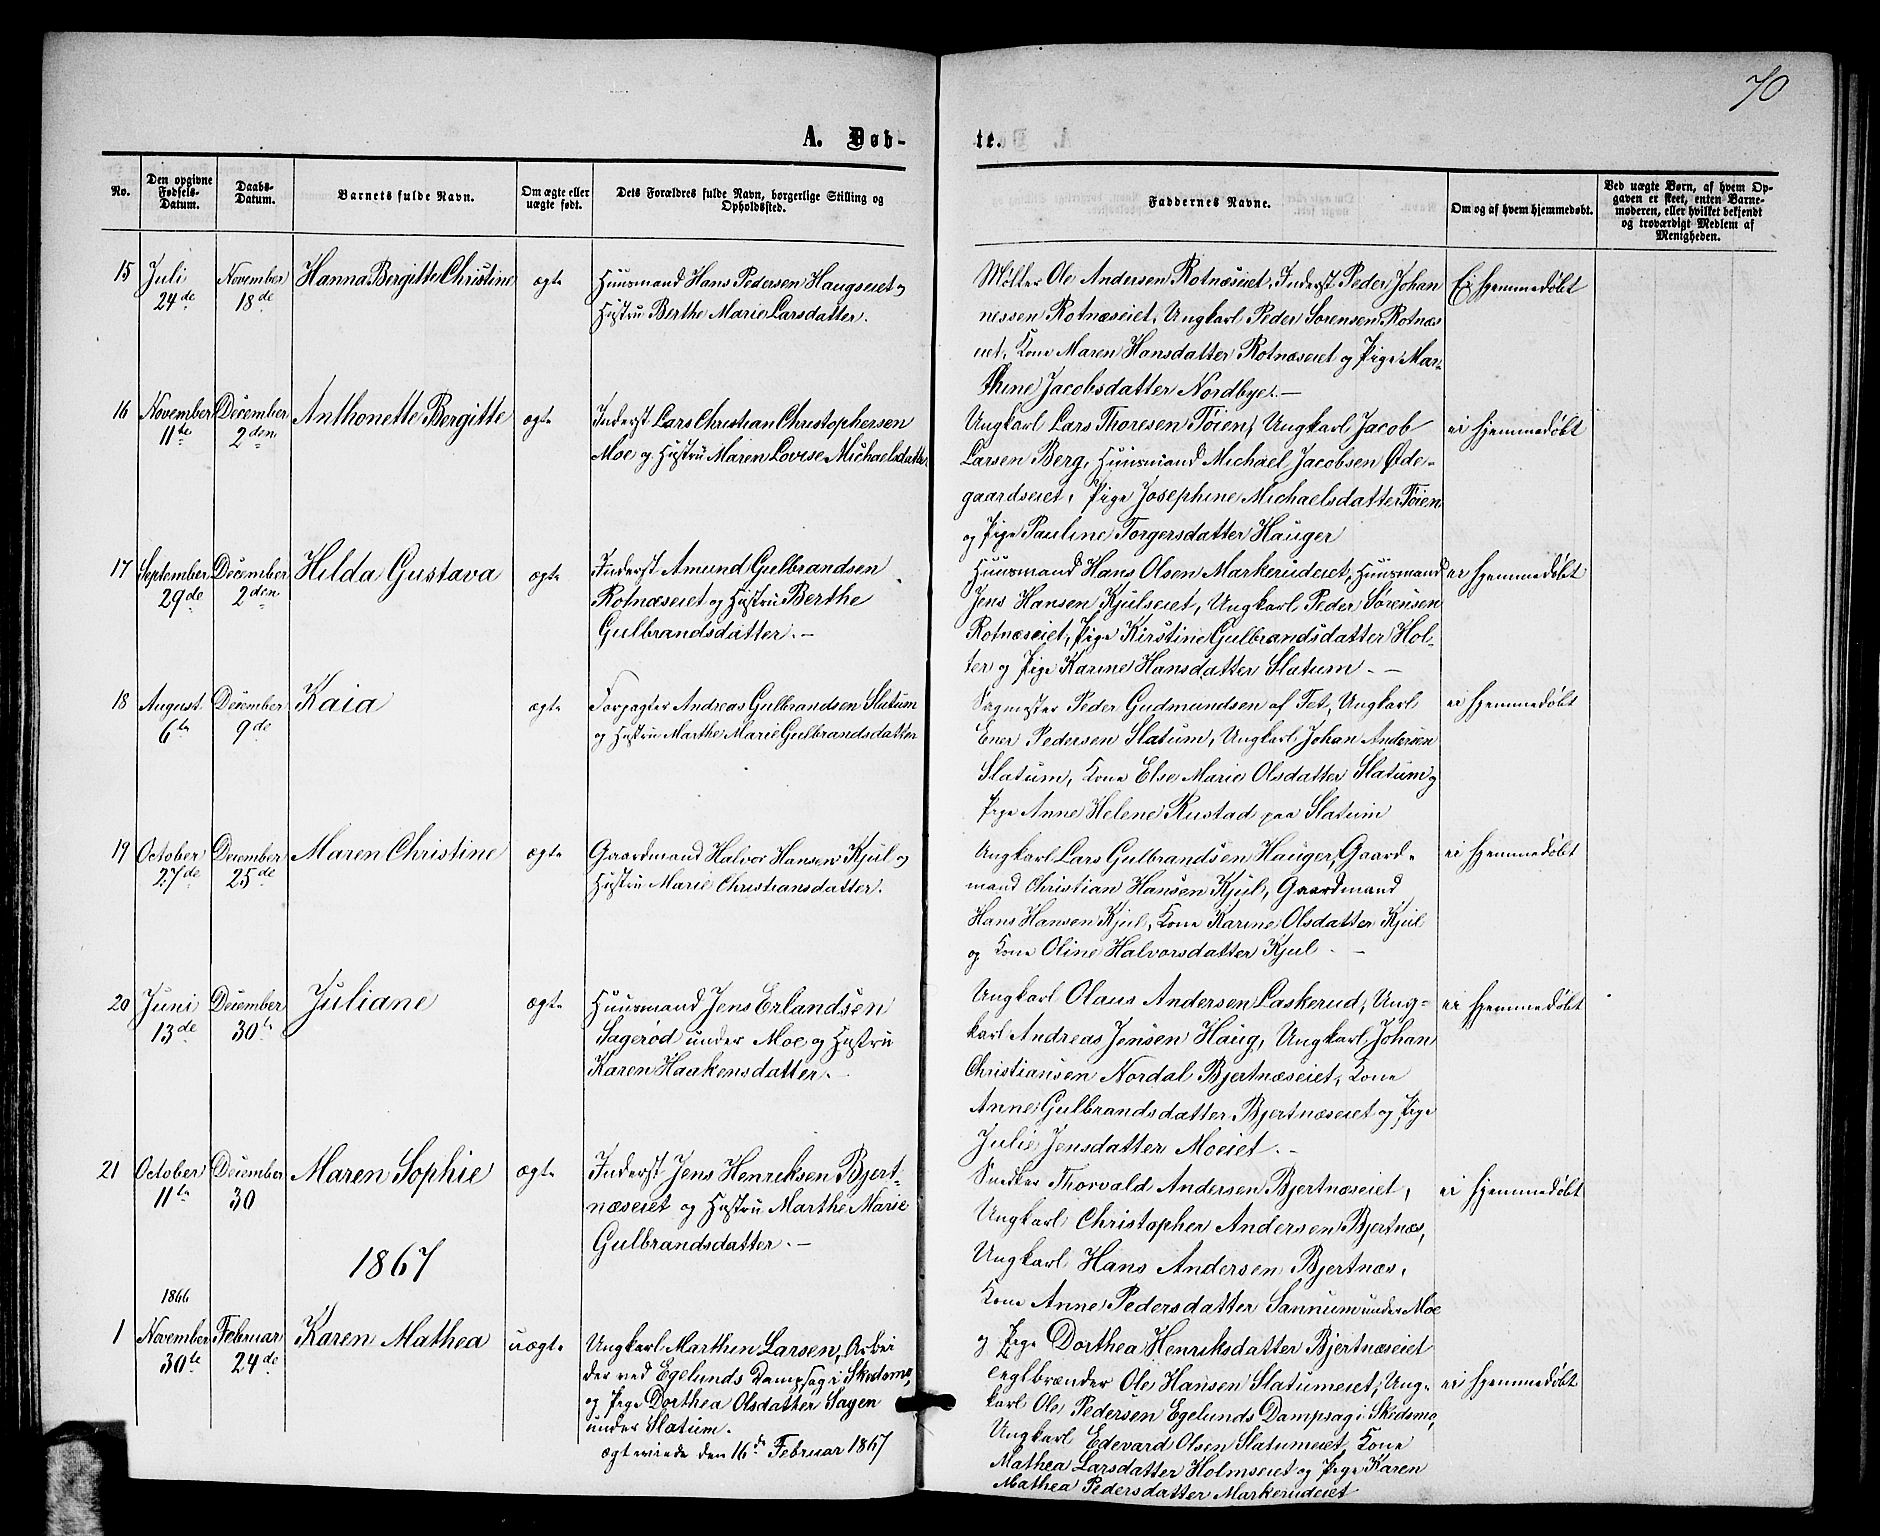 70
A. Døb-
te.
No.
Den opgivne Fødsels-Datum.
Daabs-Datum.
Barnets fulde Navn.
Om ægte eller uægte født.
Dets Forældres fulde Navn, borgerlige Stilling og Opholdssted.
Faddernes Navne.
Om og af hvem hjemmedøbt.
Ved uægte Børn, af hvem Opgaven er skeet, enten Barnemoderen, eller hvilket bekjendt og troværdigt Medlem af Menigheden.
15
Juli
24de
November
18de
Hanna Bergitte Christine
ægte
Huusmand Hans Pedersen Haugseiet og
Hustru Berthe Marie Larsdatter.
Møller Ole Andersen Rotnæseiet, Inderst Peder Johan
nessen Rotnæseiet, Ungkarl Peder Sørensen Rotnæs
eiet, Kone Maren Hansdatter Rotnæseiet og Pige Mar-
thine Jacobsdatter Nordbye.—
Ei hjemmedøbt
16
November
11te
December
2den
Anthonette Bergitte
ægte
Inderst Lars Christian Christophersen
Moe og Hustru Maren Lovise Michaelsdatter
Ungkarl Lars Thoresen Tøien, Ungkarl Jacob
Larsen Berg, Huusmand Michael Jacobsen Øde-
gaardseiet, Pige Josephine Michaelsdatter Tøien
og Pige Pauline Torgersdatter Hauger
ei hjemmedøbt
17
September
29de
December
2den
Hilda Gustava
ægte
Inderst Amund Gulbrandsen
Rotnæseiet og Hustru Berthe
Gulbrandsdatter.—
Huusmand Hans Olsen Markerudeiet, Huusmand
Jens Hansen Kjulseiet, Ungkarl Peder Sørensen
Rotnæseiet, Pige Kirstine Gulbrandsdatter Hol-
ter og Pige Karine Hansdatter Slatum.—
ei hjemmedøbt
18
August
6te
December
9de
Kaia
ægte
Forpagter Andreas Gulbrandsen Slatum
og Hustru Marthe Marie Gulbrandsdatter
Sagmester Peder Gudmundsen af Fet, Ungkarl
Ener Pedersen Slatum, Ungkarl Johan Andersen
Slatum, Kone Else Marie Olsdatter Slatum og
Pige Anne Helene Rustad paa Slatum
ei hjemmedøbt
19
October
27de
December
25de
Maren Christine
ægte
Gaardmand Halvor Hansen Kjul og
Hustru Marie Christiansdatter.
Ungkarl Lars Gulbrandsen Hauger, Gaard-
mand Christian Hansen Kjul, Gaardmand
Hans Hansen Kjul, Kone Karine Olsdatter Kjul
og Kone Oline Halvorsdatter Kjul.—
ei hjemmedøbt
20
Juni
13de
December
30te
Juliane
ægte
Huusmand Jens Erlandsen
Sagerød under Moe og Hustru
Karen Haakensdatter.
Ungkarl Olaus Andersen Laskerud, Ung-
karl Andreas Jensen Haug, Ungkarl Johan
Christiansen Nordal Bjertnæseiet, Kone
Anne Gulbrandsdatter Bjertnæseiet og Pige
Julie Jensdatter Moeiet.—
ei hjemmedøbt
21
October
11te
December
30
Maren Sophie
ægte
Inderst Jens Henriksen Bjert-
næseiet og Hustru Marthe Marie
Gulbrandsdatter.—
Snedker Thorvald Andersen Bjertnæseiet,
Ungkarl Christopher Andersen Bjertnæs,
Ungkarl Hans Andersen Bjertnæs,
Kone Anne Pedersdatter Sannum under Moe
og Pige Dorthea Henriksdatter Bjertnæseiet
ei hjemmedøbt
1867
1
1866
November
30te
Februar
24de
Karen Mathea
uægte
Ungkarl Marthin Larsen, Arbei
der ved Egelunds Dampsag i Skedsmo,
og Pige Dorthea Olsdatter Sagen
under Slatum.
ægteviede den 16de Februar 1867
Ole Hansen Slatumeiet, Ung-
karl Ole Pedersen Egelunds Dampsag i Skedsmo,
Ungkarl Edevard Olsen Slatumeiet, Kone
Mathea Larsdatter Holmseiet og Pige Karen
Mathea Pedersdatter Markerudeiet
ei hjemmedøbt